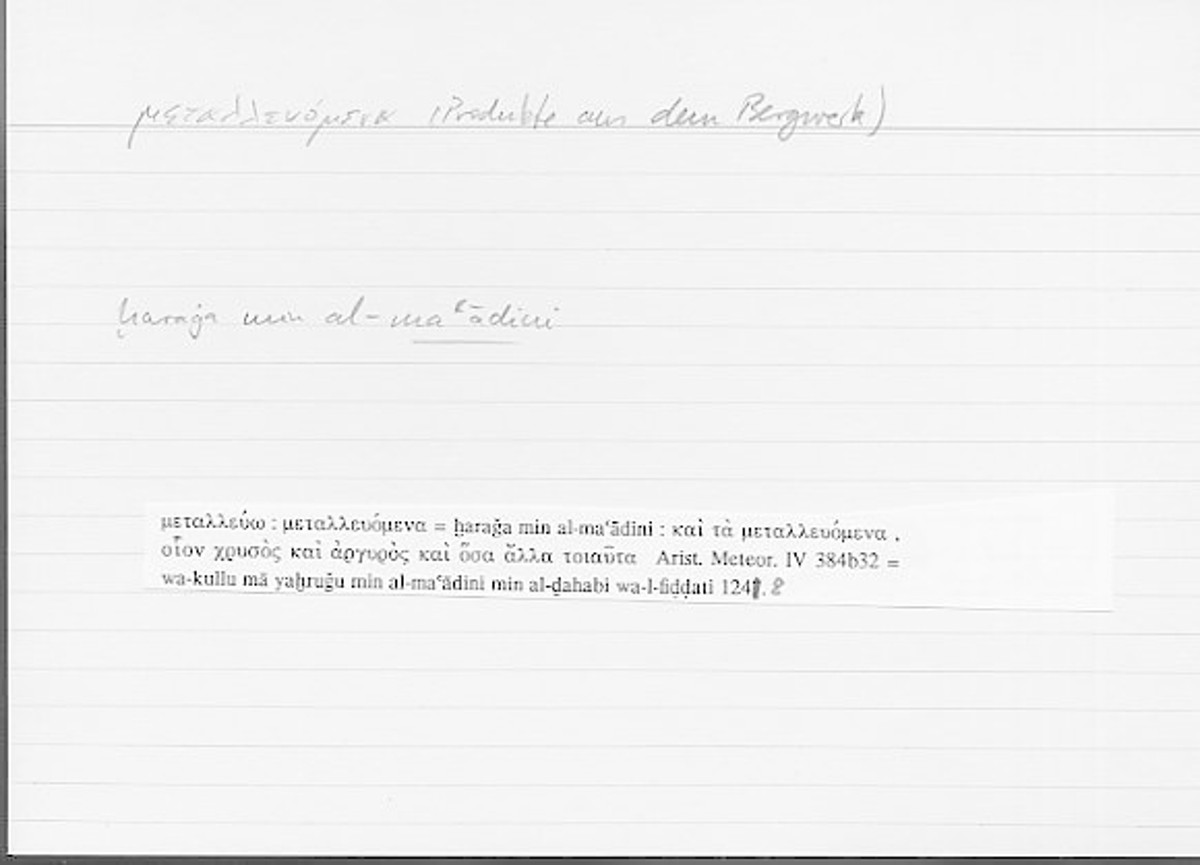 μεταλλευόμενα (Produkte aus dem Bergwerk)
ḫaraǧa min al-maʿādini
μεταλλεύω : μεταλλευόμενα = ḫaraǧa min al-maʿādini : καὶ τὰ μεταλλευόμενα ,
οἷον χρυσὸς καὶ ἀργυρὸς καὶ ὅσα ἄλλα τοιαῦτα Arist. Meteor. IV 384b32 =
wa-kullu mā yaḫruǧu min al-maʿādini min al-ḏahabi wa-l-fiḍḍati 124